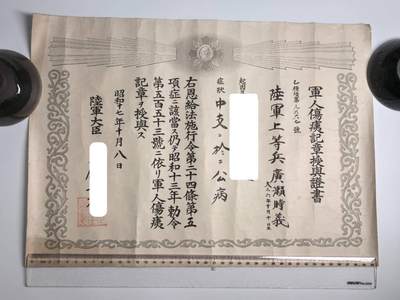 軍人傷痍記章授與證書
陸軍上等兵 廣瀨時義
症状 中支ニ於ニ公病
右恩給法施行令第二十四條第五
項症ニ該當ス仍テ昭和十三年勅令
第五百五十三號ニ依リ軍人傷痍
記章ヲ授與ス
昭和十七年十月八日
陸軍大臣